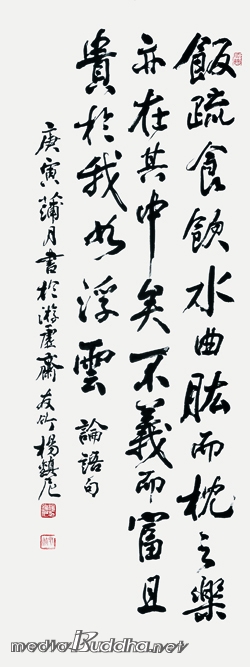 飯疏食飲水曲肱而枕之樂
亦在其中矣不義而富且
貴於我如浮雲 論語句
庚寅蒲月書於游虛齋友竹楊鎮
mediaBuddha.net